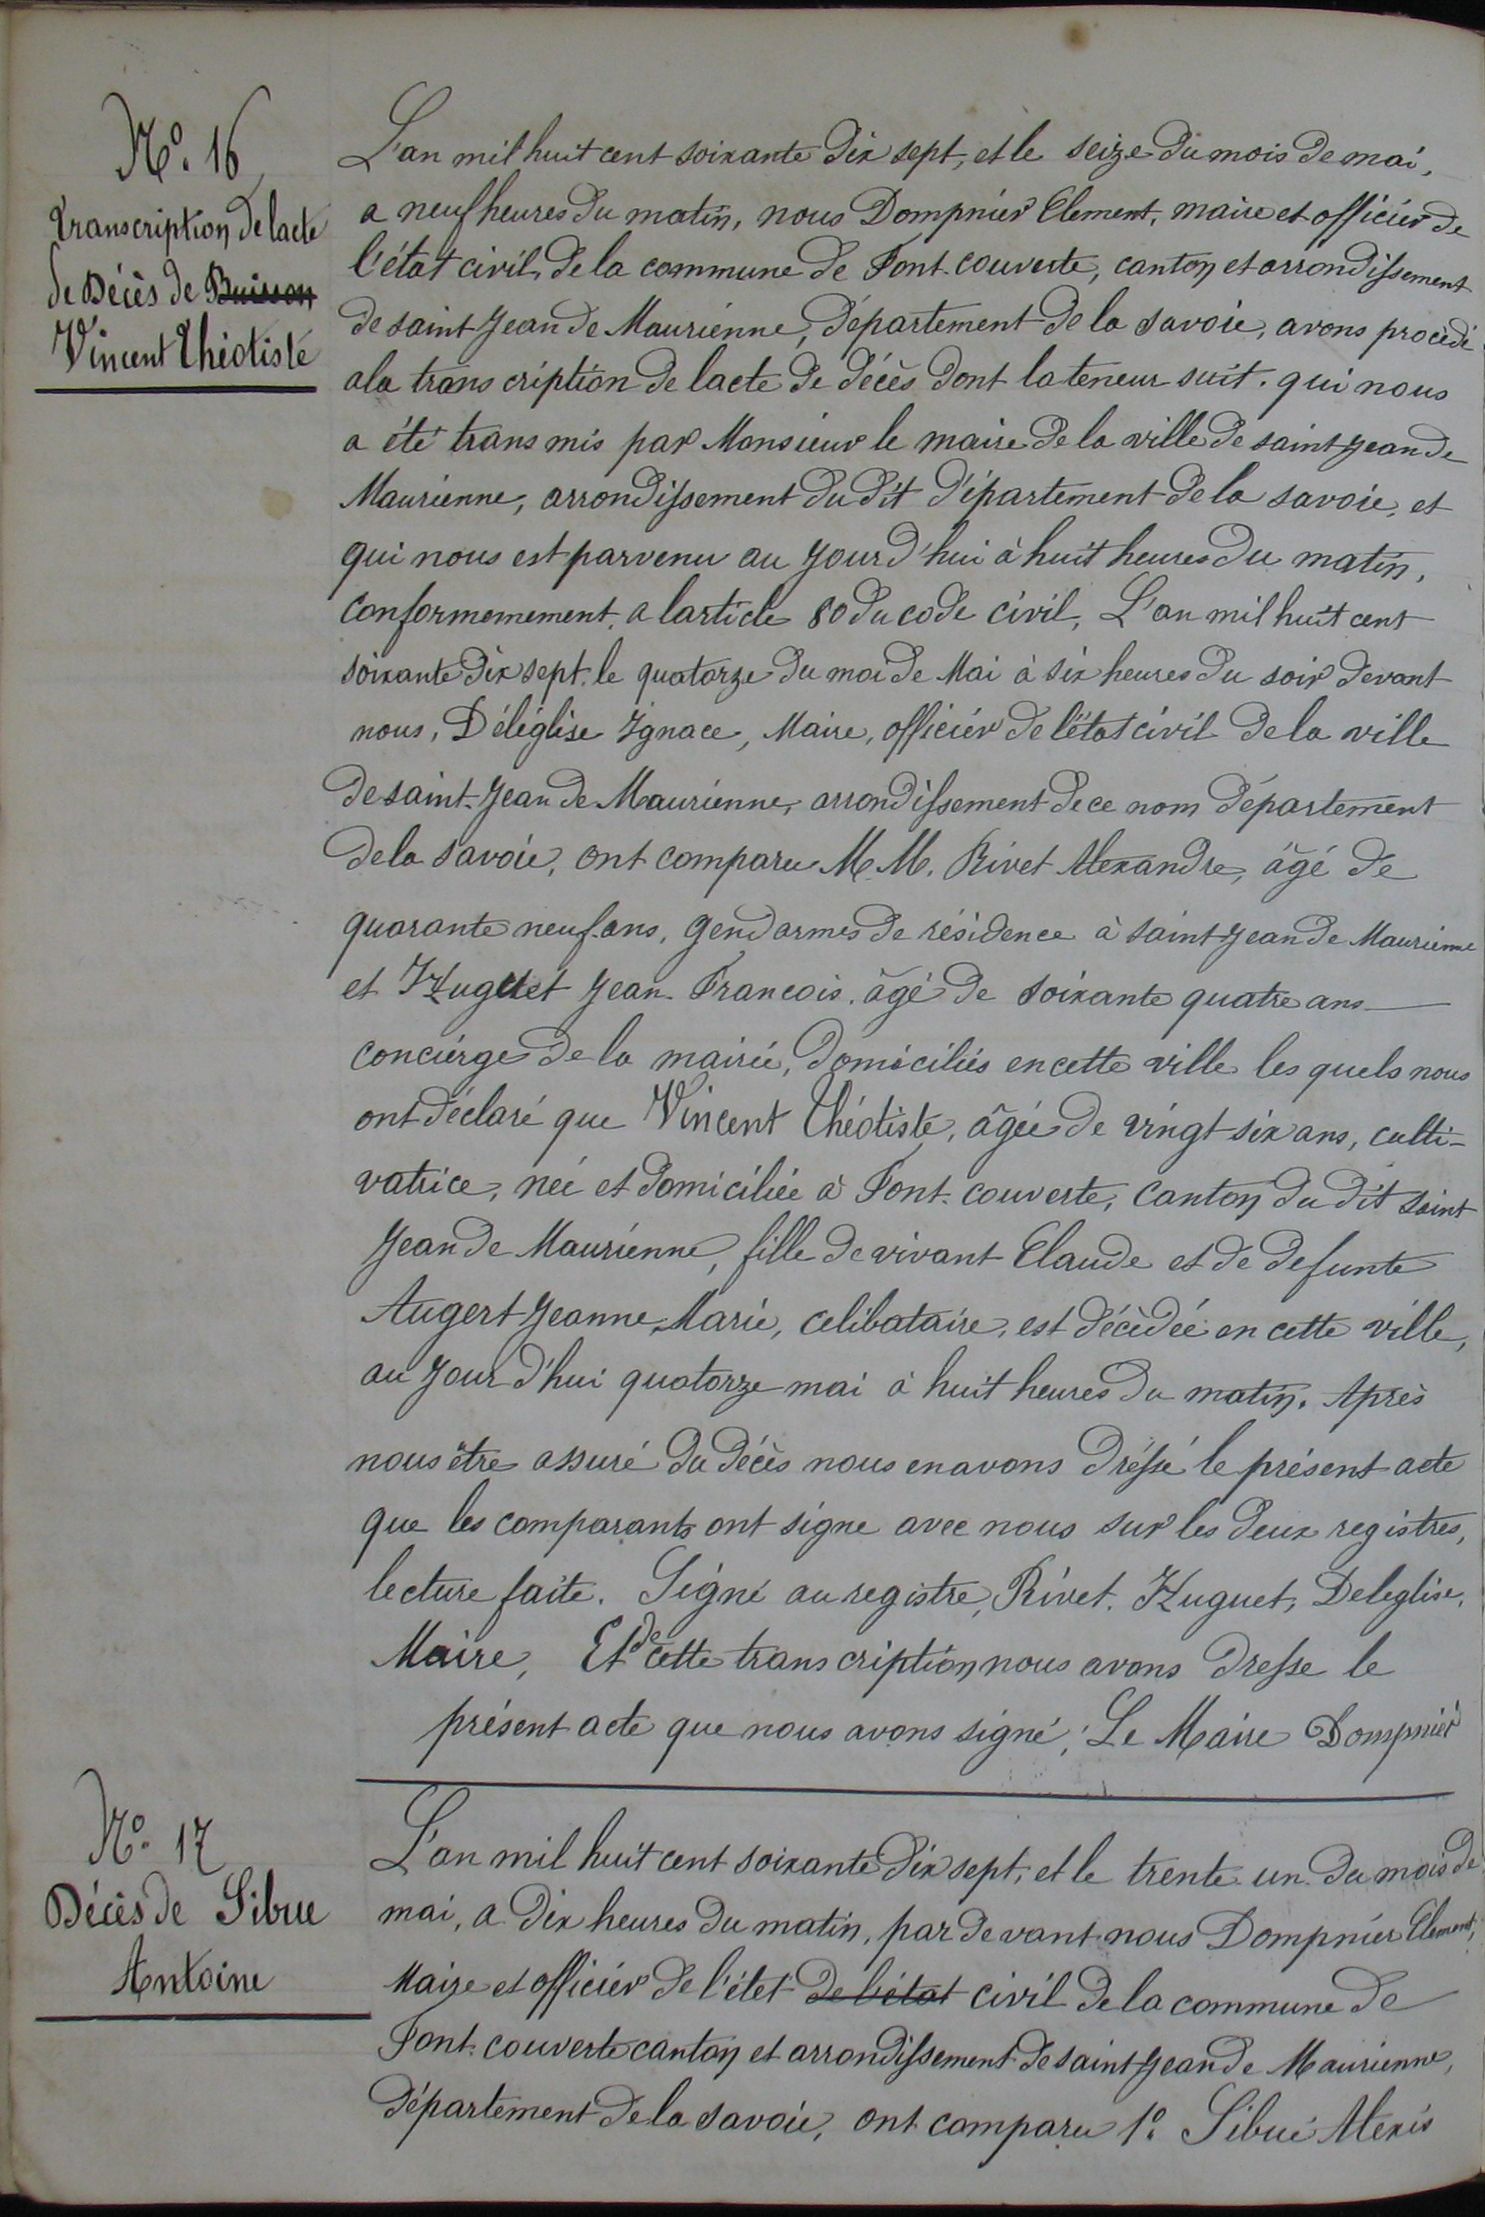 N.o 16
transcription de lacte
de Décès de Buisson
Vincent Théotiste
L'an mil huit cent soixante dix sept, et le seize du mois de mai,
a neuf heures du matin, nous Dompnier Clement, maire et officier de
l'état civil, de la commune de Font-couverte, canton et arrondissement
de saint Jean de Maurienne, département de la savoie, avons procédé
ala trans cription de lacte de décès dont la teneur suit. qui nous
a été trans mis par Monsieur le maire de la ville de saint Jean de
Maurienne, arrondissement du dit département de la savoie, et
qui nous est parvenu au Jourd'hui à huit heures du matin,
conformemement, a larticle 80 du code civil, L'an mil huit cent
soixante dix sept, le quatorze du moi de Mai à six heures du soir devant
nous, Déléglise Ignace, Maire, officier de l'état civil de la ville
de saint-Jean de Maurienne, arrondissement de ce nom département
de la savoie, ont comparu M.M. Rivet Alexandre, âgé de
quarante neuf ans, gendarmes de résidence à saint Jean de Maurienne
et Huguet Jean-Francois, âgé de soixante quatre ans
concierge de la mairie, domiciliés en cette ville les quels nous
ont déclaré que Vincent Théotiste, âgée de vingt six ans, culti-
vatrice, née et domiciliée à Font-couverte, canton du dit saint
Jean de Maurienne, fille de vivant Claude et de defunte
Augert Jeanne Marie, celibataire, est décédée en cette ville,
au Jour d'hui quatorze mai à huit heures du matin. Après
nous être assuré du décès nous en avons dréssé le présent acte
que les comparants ont signe avec nous sur les deux registres,
lecture faite. Signé au registre, Rivet. Huguet, Deleglise,
Maire, Et de cette trans cription nous avons dresse le
présent acte que nous avons signé; Le Maire Dompnier
N.o 17
Décès de Sibue
Antoine
L'an mil huit cent soixante dix sept, et le trente un du mois de
mai, a dix heures du matin, par devant nous Dompnier Clement,
Maire et officier de l'étet de l'état civil de la commune de
Font-couverte canton et arrondissement de saint Jean de Maurienne,
département de la savoie, ont comparu 1.o Sibué Alexis